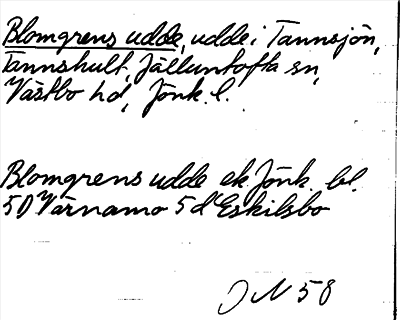 Blomgrens udde, udde i Tannsjön,
Tannshult, Jälluntofta sn,
Västbo hd, Jönk. l.
Blomgrens udde ek. Jönk. bl.
5D Värnamo 5d Eskilsbo
JN 58